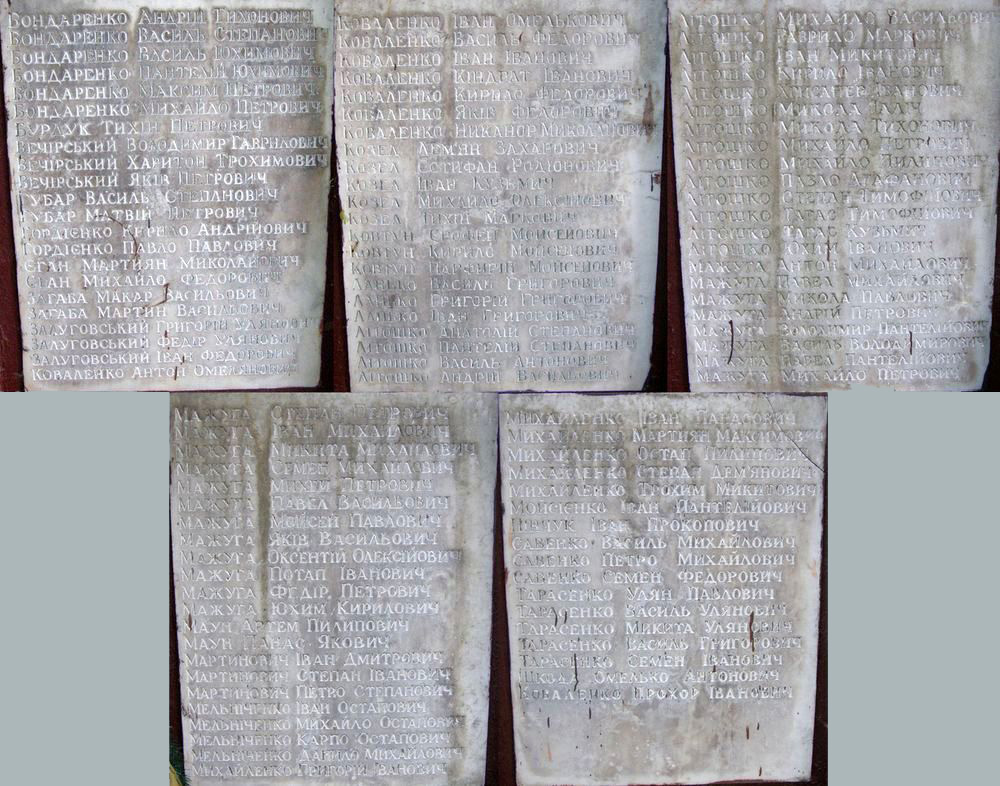 БОНДАРЕНКО АНДРІЙ ТИХОНОВИЧ
БОНДАРЕНКО ВАСИЛЬ СТЕПАНОВИЧ
БОНДАРЕНКО ВАСИЛЬ ЮХИМОВИЧ
БОНДАРЕНКО ПАНТЕЛІЙ ЮХИМОВИЧ
БОНДАРЕНКО МАКСИМ ПЕТРОВИЧ
БОНДАРЕНКО МИХАЙЛО ПЕТРОВИЧ
БУРДУК ТИХІН ПЕТРОВИЧ
ВЕЧІРСЬКИЙ ВОЛОДИМИР ГАВРИЛОВИЧ
ВЕЧІРСЬКИЙ ХАРИТОН ТРОХИМОВИЧ
ВЕЧІРСЬКИЙ ЯКІВ ПЕТРОВИЧ
ГУБАР ВАСИЛЬ СТЕПАНОВИЧ
ГУБАР МАТВІЙ ПЕТРОВИЧ
ГОРДІЄНКО КИРИЛО АНДРІЙОВИЧ
ГОРДІЄНКО ПАВЛО ПАВЛОВИЧ
ЄГАН МАРТИЯН МИКОЛАЙОВИЧ
ЄГАН МИХАЙЛО ФЕДОРОВИЧ
ЗАГАБА МАКАР ВАСИЛЬОВИЧ
ЗАГАБА МАРТИН ВАСИЛЬОВИЧ
ЗАЛУГОВСЬКИЙ ГРИГОРІЙ УЛЯНОВИЧ
ЗАЛУГОВСЬКИЙ ФЕДІР УЛЯНОВИЧ
ЗАЛУГОВСЬКИЙ ІВАН ФЕДОРОВИЧ
КОВАЛЕНКО АНТОН ОМЕЛЯНОВИЧ
КОВАЛЕНКО ІВАН ОМЕЛЬКОВИЧ
КОВАЛЕНКО ВАСИЛЬ ФЕДОРОВИЧ
КОВАЛЕНКО ІВАН ІВАНОВИЧ
КОВАЛЕНКО КІНДРАТ ІВАНОВИЧ
КОВАЛЕНКО КИРИЛО ФЕДОРОВИЧ
КОВАЛЕНКО ЯКІВ ФЕДОРОВИЧ
КОВАЛЕНКО НИКАНОР МИКОЛАЙОВИЧ
КОЗЕЛ ДЕМЯН ЗАХАРОВИЧ
КОЗЕЛ ЄСТИФАН РОДІОНОВИЧ
КОЗЕЛ ІВАН КУЗЬМИЧ
КОЗЕЛ МИХАЙЛО ОЛЕКСІЙОВИЧ
КОЗЕЛ ТИХІН МАРКОВИЧ
КОВТУН ЄРОФЕЙ МОЙСЕЙОВИЧ
КОВТУН КИРИЛО МОЙСЕЙОВИЧ
КОВТУН ПАРФИРІЙ МОЙСЕЙОВИЧ
ВАСИЛЬ ГРИГОРОВИЧ
ГРИГОРІЙ ГРИГОРОВИЧ
ІВАН ГРИГОРОВИЧ
ЛІТОШКО АНАТОЛІЙ СТЕПАНОВИЧ
ЛІТОШКО ПАНТЕЛІЙ СТЕПАНОВИЧ
ЛІТОШКО ВАСИЛЬ АНТОНОВИЧ
ЛІТОШКО АНДРІЙ ВАСИЛЬОВИЧ
ЛІТОШКО МИХАЙЛО ВАСИЛЬОВИЧ
ЛІТОШКО ГАВРИЛО МАРКОВИЧ
ЛІТОШКО ІВАН МИКИТОВИЧ
ЛІТОШКО КИРИЛО ІВАНОВИЧ
ЛІТОШКО ІВАНОВИЧ
ЛІТОШКО МИКОЛА
ЛІТОШКО МИКОЛА ТИХОНОВИЧ
ЛІТОШКО МИХАЙЛО ПЕТРОВИЧ
ЛІТОШКО МИХАЙЛО ПИЛИПОВИЧ
ЛІТОШКО ПАВЛО АГАФАНОВИЧ
ЛІТОШКО СТЕПАН ТИМОФІЙОВИЧ
ЛІТОШКО ТАРАС ТИМОФІЙОВИЧ
ЛІТОШКО ТАРАС КУЗЬМИЧ
ЛІТОШКО ЮХИМ ІВАНОВИЧ
МАЖУГА АНТОН МИХАЙЛОВИЧ
МАЖУГА ПАВЕЛ МИХАЙЛОВИЧ
МАЖУГА МИКОЛА ПАВЛОВИЧ
МАЖУГА АНДРІЙ ПЕТРОВИЧ
МАЖУГА ВОЛОДИМИР ПАНТЕЛІЙОВИЧ
МАЖУГА ВАСИЛЬ ВОЛОДИМИРОВИЧ
МАЖУГА ПАВЕЛ ПАНТЕЛІЙОВИЧ
МАЖУГА МИХАЙЛО ПЕТРОВИЧ
МАЖУГА СТЕПАН ПЕТРОВИЧ
МАЖУГА ІВАН МИХАЙЛОВИЧ
МАЖУГА МИКИТА МИХАЙЛОВИЧ
МАЖУГА СЕМЕН МИХАЙЛОВИЧ
МАЖУГА МИХЕЙ ПЕТРОВИЧ
МАЖУГА ПАВЕЛ ВАСИЛЬОВИЧ
МАЖУГА МОЙСЕЙ ПАВЛОВИЧ
МАЖУГА ЯКІВ ВАСИЛЬОВИЧ
МАЖУГА ОКСЕНТІЙ ОЛЕКСІЙОВИЧ
МАЖУГА ПОТАП ІВАНОВИЧ
МАЖУГА ФЕДІР ПЕТРОВИЧ
МАЖУГА ЮХИМ КИРИЛОВИЧ
МАУН АРТЕМ ПИЛИПОВИЧ
МАУН ПАНАС ЯКОВИЧ
МАРТИНОВИЧ ІВАН ДМИТРОВИЧ
МАРТИНОВИЧ СТЕПАН ІВАНОВИЧ
МАРТИНОВИЧ ПЕТРО СТЕПАНОВИЧ
МЕЛЬНІЧЕНКО ІВАН ОСТАПОВИЧ
МЕЛЬНІЧЕНКО МИХАЙЛО ОСТАПОВИЧ
МЕЛЬНІЧЕНКО КАРПО ОСТАПОВИЧ
МЕЛЬНІЧЕНКО ДАНИЛО МИХАЙЛОВИЧ
МИХАЙЛЕНКО ГРИГОРІЙ ІВАНОВИЧ
МИХАЙЛЕНКО ІВАН ПАНАСОВИЧ
МИХАЙЛЕНКО МАРТИЯН МАКСИМОВИЧ
МИХАЙЛЕНКО ОСТАП ПИЛИПОВИЧ
МИХАЙЛЕНКО СТЕПАН ДЕМ'ЯНОВИЧ
МИХАЙЛЕНКО ТРОХИМ МИКИТОВИЧ
МОЙСІЄНКО ІВАН ПАНТЕЛІЙОВИЧ
ІВАН ПРОКОПОВИЧ
САВЕНКО ВАСИЛЬ МИХАЙЛОВИЧ
САВЕНКО ПЕТРО МИХАЙЛОВИЧ
САВЕНКО СЕМЕН ФЕДОРОВИЧ
ТАРАСЕНКО УЛЯН ПАВЛОВИЧ
ТАРАСЕНКО ВАСИЛЬ УЛЯНОВИЧ
ТАРАСЕНКО МИКИТА УЛЯНОВИЧ
ТАРАСЕНКО ВАСИЛЬ ГРИГОРОВИЧ
ТАРАСЕНКО СЕМЕН ІВАНОВИЧ
ШКОДА ОМЕЛЬКО АНТОНОВИЧ
КОВАЛЕНКО ПРОХОР ІВАНОВИЧ